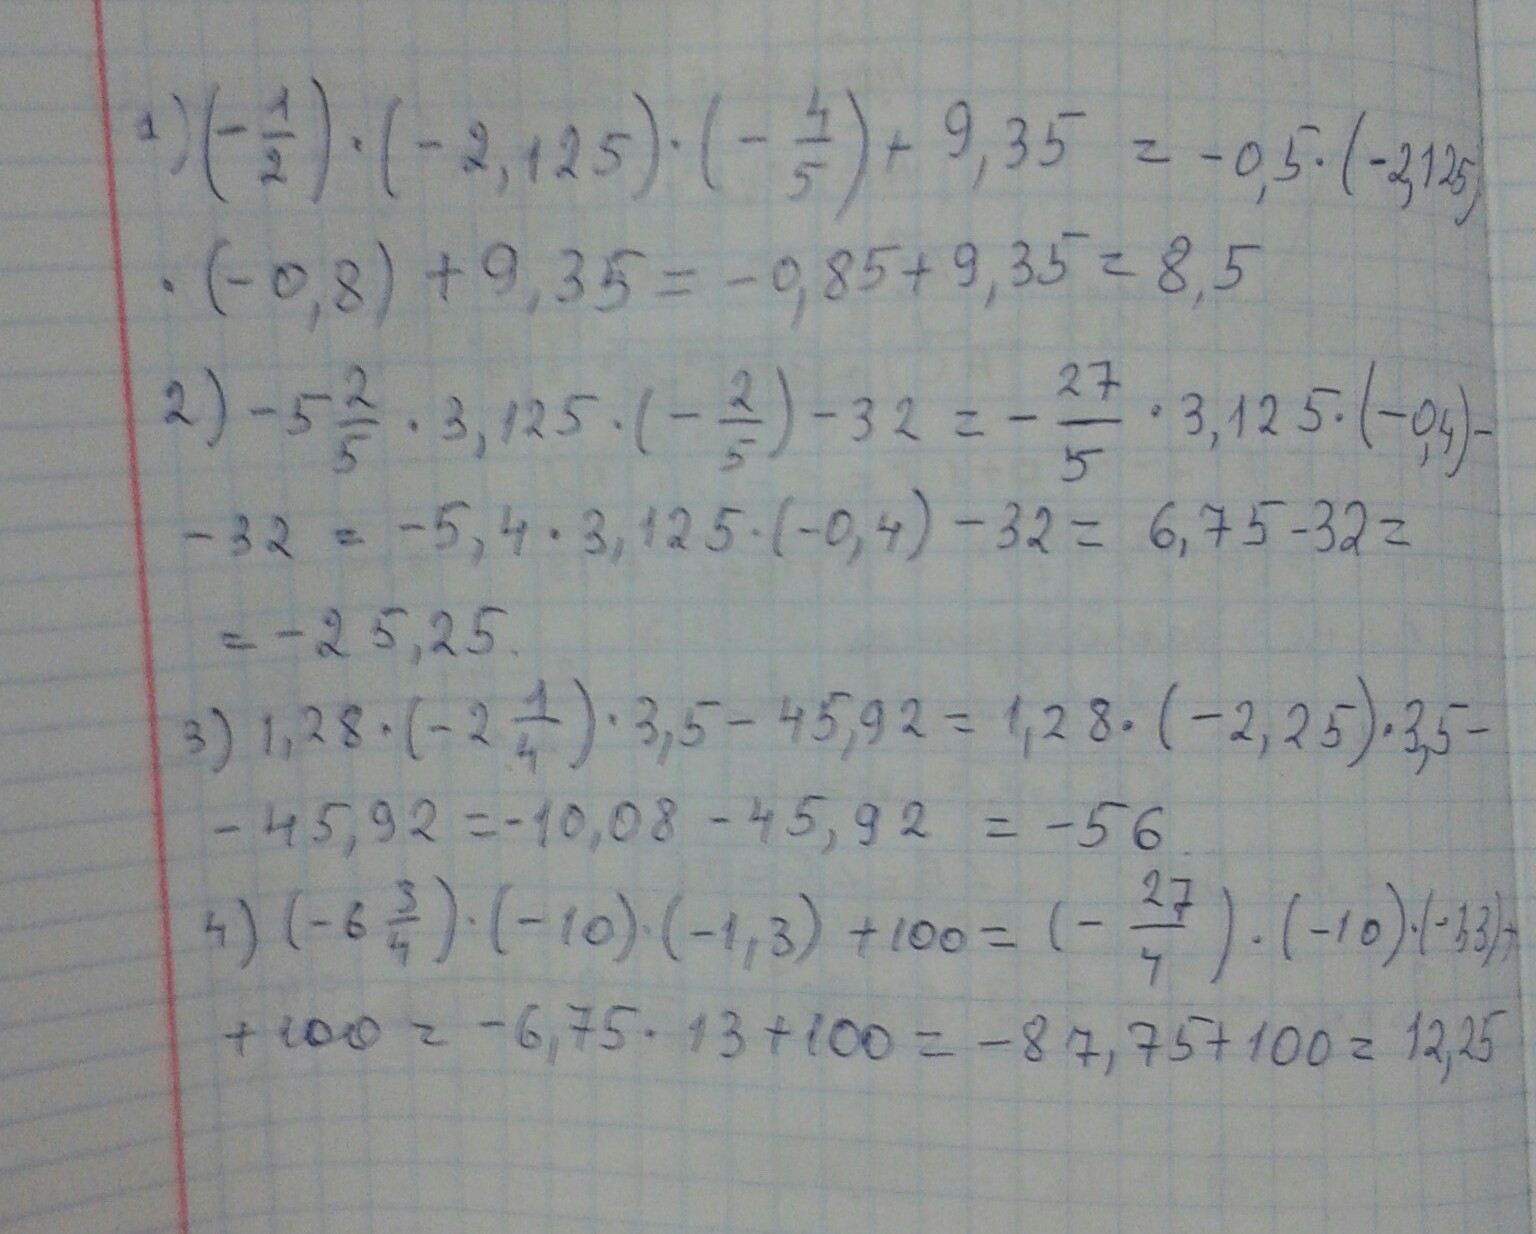 1) (-1/2) · (-2,125) · (-4/5) + 9,35 = -0,5 · (-2,125)
· (-0,8) + 9,35 = -0,85 + 9,35 = 8,5
2) -5 2/5 · 3,125 · (-2/5) - 32 = -27/5 · 3,125 · (-0,4) -
- 32 = -5,4 · 3,125 · (-0,4) - 32 = 6,75 - 32 =
= -25,25.
3) 1,28 · (-2 1/4) · 3,5 - 45,92 = 1,28 · (-2,25) · 3,5 -
- 45,92 = -10,08 - 45,92 = -56.
4) (-6 3/4) · (-10) · (-1,3) + 100 = (-27/4) · (-10) · (-1,3) +
+ 100 = -6,75 · 13 + 100 = -87,75 + 100 = 12,25